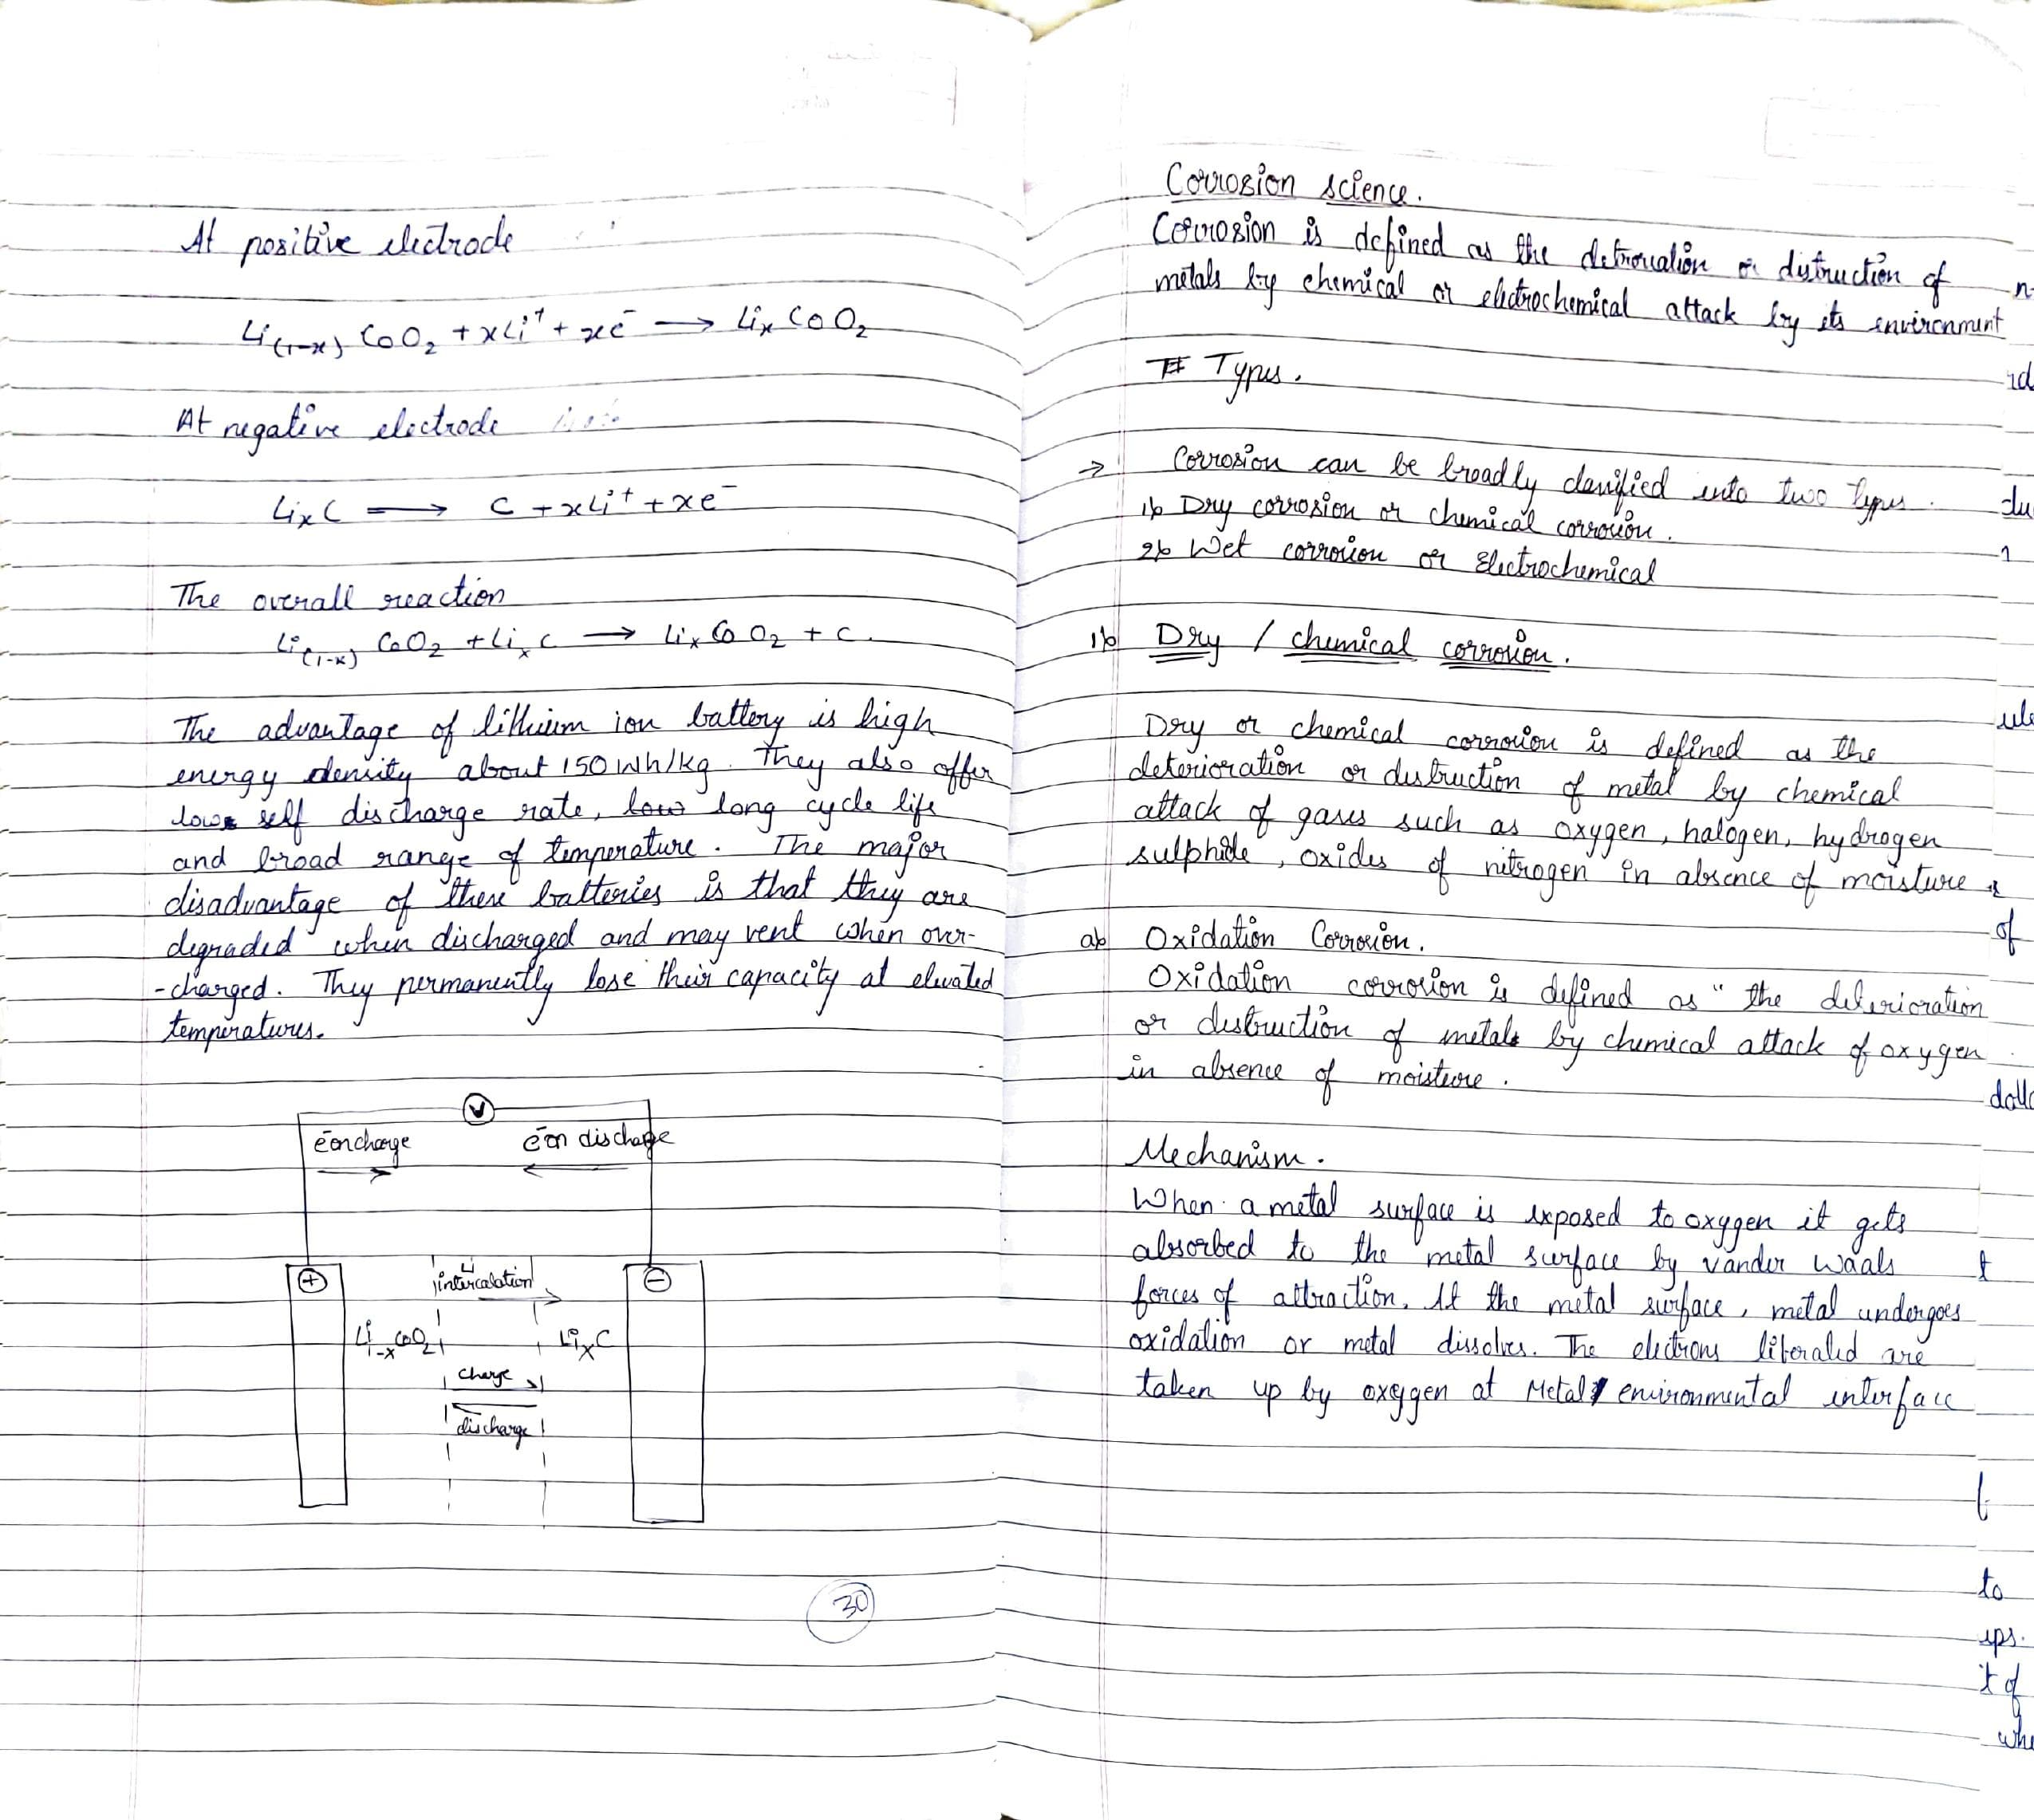 At positive electrode
Li(1-x) CoO2 + xLi+ + xe- → Lix CoO2
At negative electrode
LixC → C + xLi+ + xe-
The overall reaction
Li(1-x) CoO2 + LixC → Lix CoO2 + C.
The advantage of lithium ion battery is high
energy density about 150 Wh/kg. They also offer
low self discharge rate, low long cycle life
and broad range of temperature. The major
disadvantage of these batteries is that they are
degraded when discharged and may vent when over-
-charged. They permanently lose their capacity at elevated
temperatures.
V
e- on charge
e- on discharge
+
Li
intercalation
-
Li1-xCoO2
LixC
charge
discharge
30
Corrosion science.
Corrosion is defined as the detrioration or distruction of
metals by chemical or electrochemical attack by its environment
# Types.
→ Corrosion can be broadly classified into two types.
1) Dry corrosion or chemical corrosion.
2) Wet corrosion or Electrochemical
1) Dry / chemical corrosion.
Dry or chemical corrosion is defined as the
deterioration or destruction of metal by chemical
attack of gases such as oxygen, halogen, hydrogen
sulphide, oxides of nitrogen in absence of moisture
a) Oxidation Corrosion.
Oxidation corrosion is defined as " the deterioration
or destruction of metals by chemical attack of oxygen
in absence of moisture.
Mechanism.
When a metal surface is exposed to oxygen it gets
absorbed to the metal surface by vander waals
forces of attraction. At the metal surface, metal undergoes
oxidation or metal dissolves. The electrons liberated are
taken up by oxygen at Metal environmental interface
of
to
it of